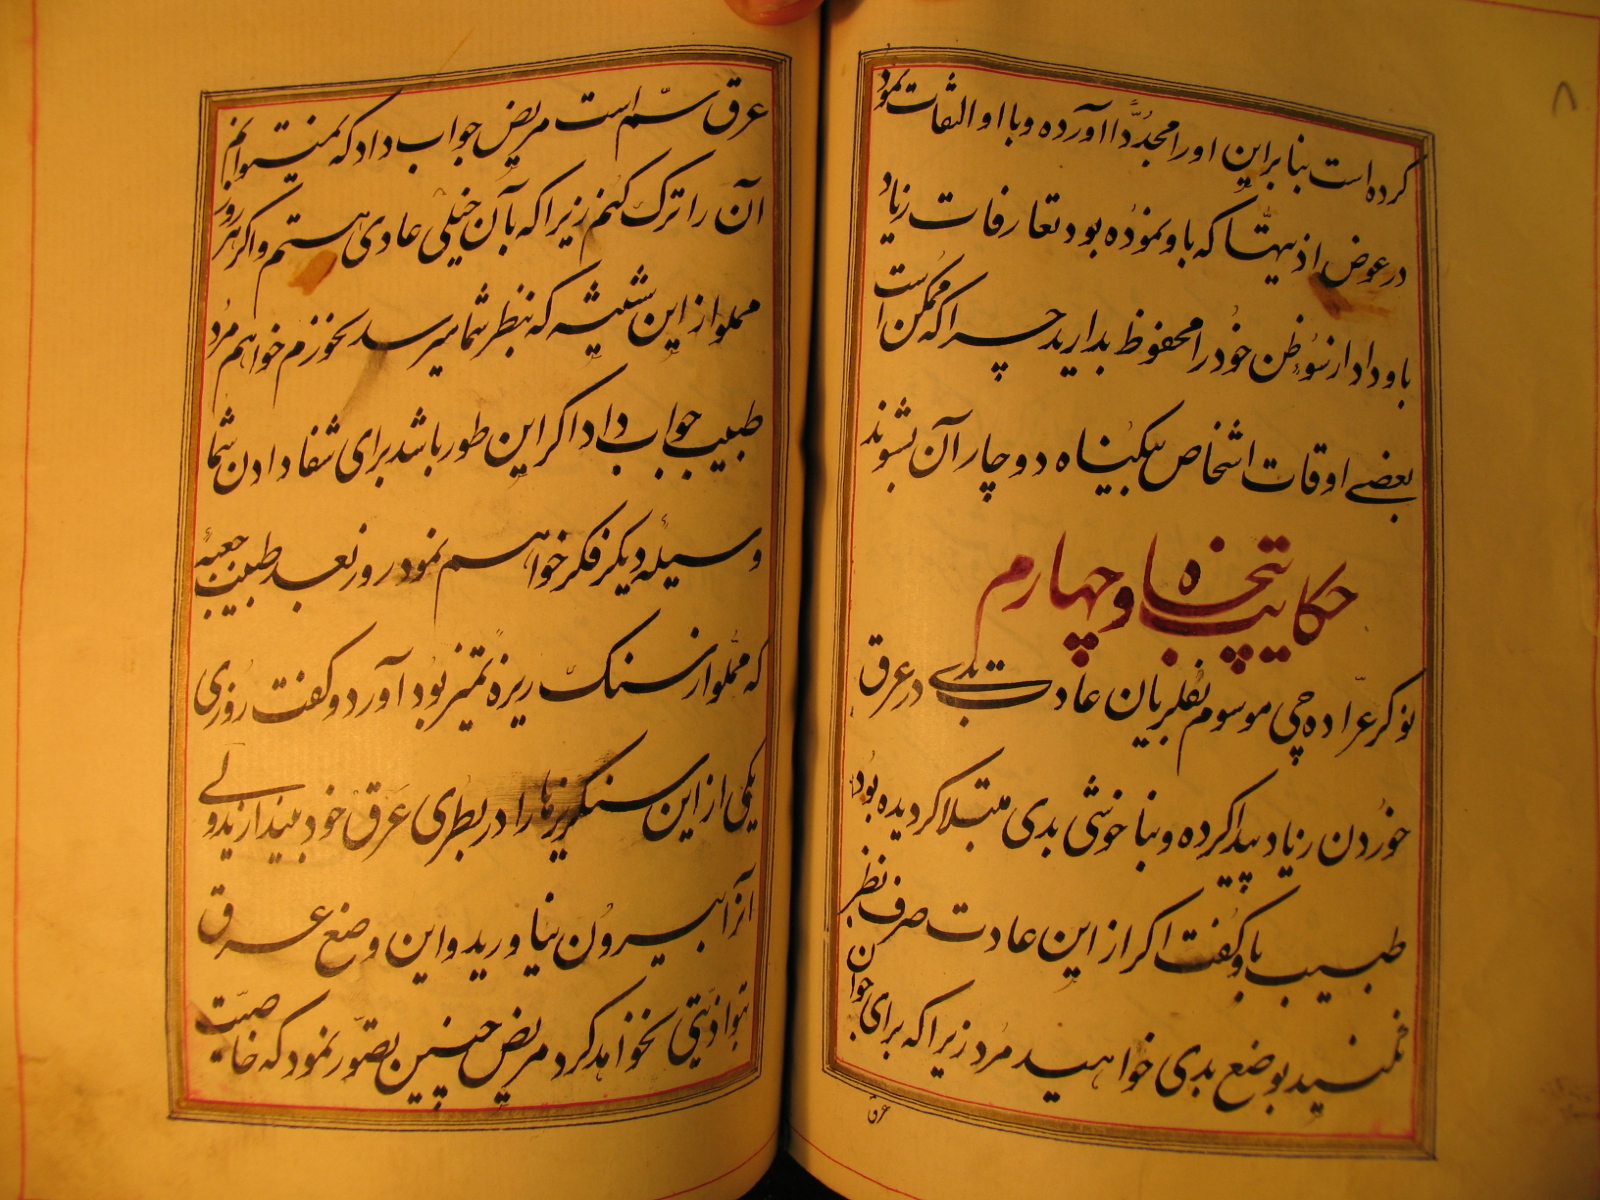 کرده است بنا براین اورا مجدّدا آورده وبا او التفات نمود
در عوض اذیتها که باو نموده بود تعارفات زیاد
باو داد از سوءظن خود را محفوظ بدارید چرا که ممکن است
بعضے اوقات اشخاص بیگناه دوچار آن بشوند
حکایت پنجاه وچهارم
نوکر عرّاده چی موسوم بفلربان عادت بدے در عرق
خوردن زیاد پیدا کرده و بناخوشی بدی مبتلا گردیده بود
طبیب باو گفت اگر از این عادت صرف نظر
نمکنید بوضع بدی خواهید مرد زیرا که برای جوان
عرق
عرق سمّ است مریض جواب داد که نمیتوانم
آن را ترک کنم زیرا که بآن خیلی عادی هستم و اگر هر روز
مملو از این شیشه که بنظر شما میرسد نخورم خواهم مرد
طبیب جواب داد اگر این طور باشد برای شفا دادن شما
وسیلهٔ دیگر فکر خواهم نمود روز بعد طبیب جعبهٔ
که مملو از سنگ ریزه تمیز بود آورد و گفت روزی
یکی از این سنگریزها را در بطری عرق خود بیندازید ولے
آنرا بیرون نیاورید و این وضع عرق
بتو اذیتی نخواهد کرد مریض چنین تصوّر نمود که خاصیّت